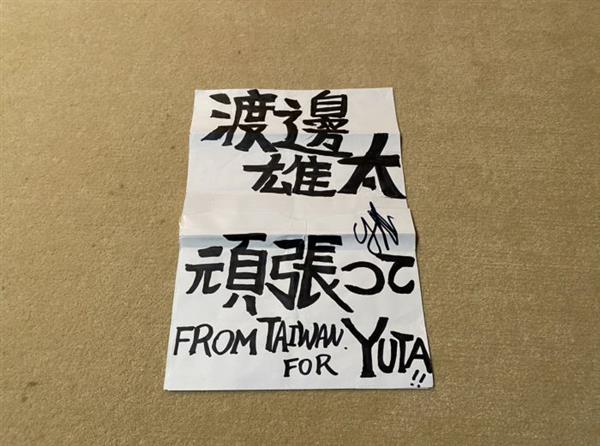 渡邊
雄太
頑張って
FROM TAIWAN.
FOR YUTA!!